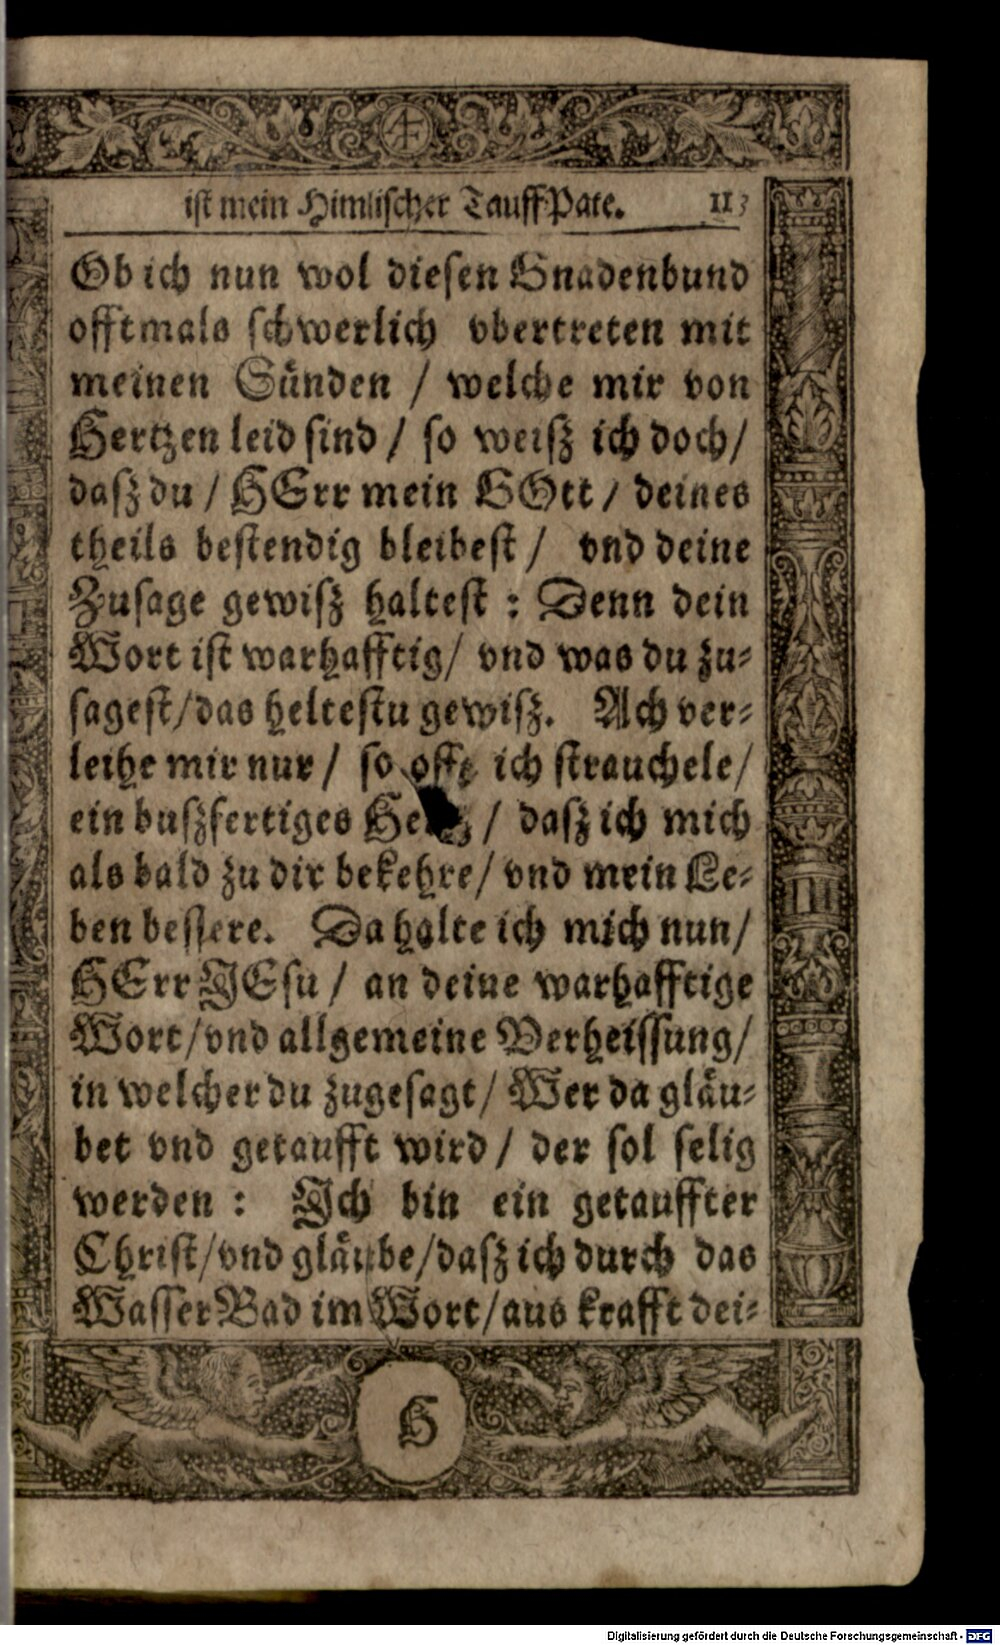 ist mein Himlischer TauffPate. 113
Ob ich nun wol diesen Gnadenbund
offtmals schwerlich vbertreten mit
meinen Sünden / welche mir von
Hertzen leid sind / so weisz ich doch/
dasz du / HErr mein GOtt / deines
theils bestendig bleibest / vnd deine
Zusage gewisz haltest : Denn dein
Wort ist warhafftig/ vnd was du zu-
sagest/das heltestu gewisz. Ach ver-
leihe mir nur / so offt ich strauchele/
ein buszfertiges Hertz / dasz ich mich
als bald zu dir bekehre/ vnd mein Le-
ben bessere. Da halte ich mich nun/
HErr JEsu / an deine warhafftige
Wort/vnd allgemeine Verheissung/
in welcher du zugesagt/ Wer da gläu-
bet vnd getaufft wird / der sol selig
werden : Jch bin ein getauffter
Christ/vnd gläube/dasz ich durch das
Wasser Bad im Wort/aus krafft dei-
H
Digitalisierung gefördert durch die Deutsche Forschungsgemeinschaft - DFG